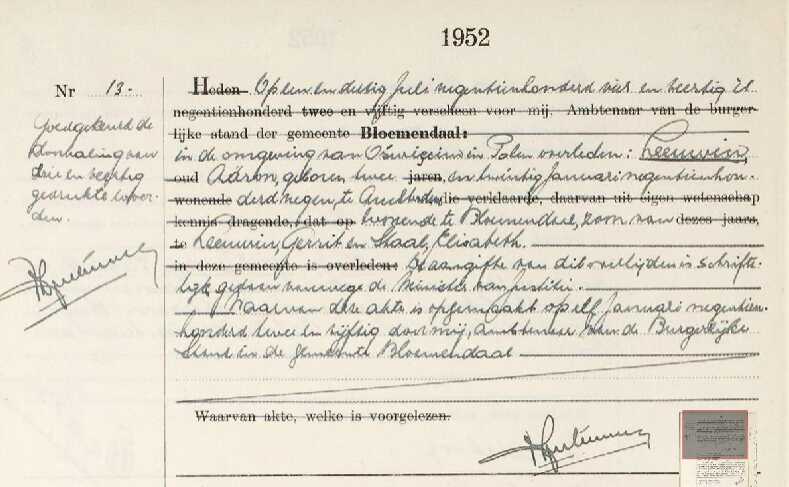 1952
Nr 13.
Heden Op een en dertig Juli negentienhonderd vier en veertig is
negentienhonderd twee en vijftig verscheen voor mij, Ambtenaar van de burger-
lijke stand der gemeente Bloemendaal:
in de omgeving van in Polen overleden: Leeuwin,
oud Aäron, geboren twee jaren, en twintig Januari negentienhon-
wonende derd negen, te die verklaarde, daarvan uit eigen wetenschap
kennis dragende, dat op wonende te Bloemendaal, zoon van dezes jaars,
te Leeuwin, Gerrit en Staal, Elisabeth.
in deze gemeente is overleden: De aangifte van dit overlijden is schrifte-
lijk gedaan vanwege de Minister van Justitie.
Waarvan deze akte is opgemaakt op elf Januari negentien-
honderd twee en vijftig door mij, Ambtenaar van de Burgerlijke
Stand in de gemeente Bloemendaal
Waarvan akte, welke is voorgelezen.
Goedgekeurd de
doorhaling van
drie en veertig
gedrukte woor-
den.